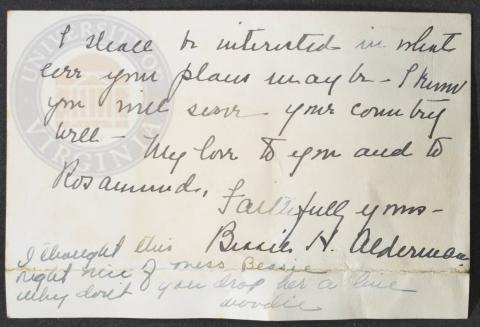 I shall be interested in what
ever your plans may be - I know
you will serve your country
well - My love to you and to
Rosamund.
Faithfully yours -
Bessie H. Alderman.
I thought this
right nice of Bessie
why don't you drop her a line
woodie
UNIVERSITY OF
VIRGINIA